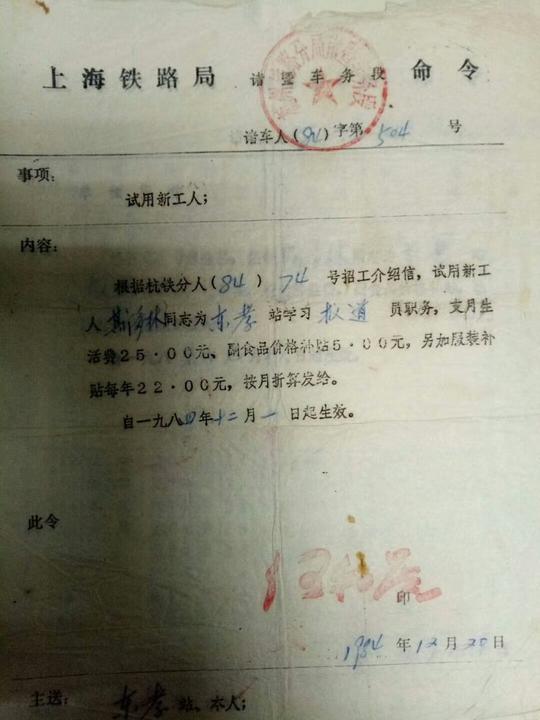 上海铁路局 诸暨车务段 命令
诸车人(84)字第504号
事项:
试用新工人;
内容:
根据杭铁分人(84)74号招工介绍信，试用新工
人 同志为东孝站学习扳道员职务，支月生
活费25·00元、副食品价格补贴5·00元，另加服装补
贴每年22·00元，按月折算发给。
自一九八四年十二月一日起生效。
此令
印
1984年12月20日
主送:东孝站、本人;